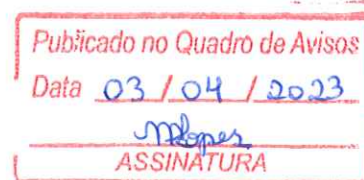 Publicado no Quadro de Avisos
Data 03 / 04 / 2023
ASSINATURA